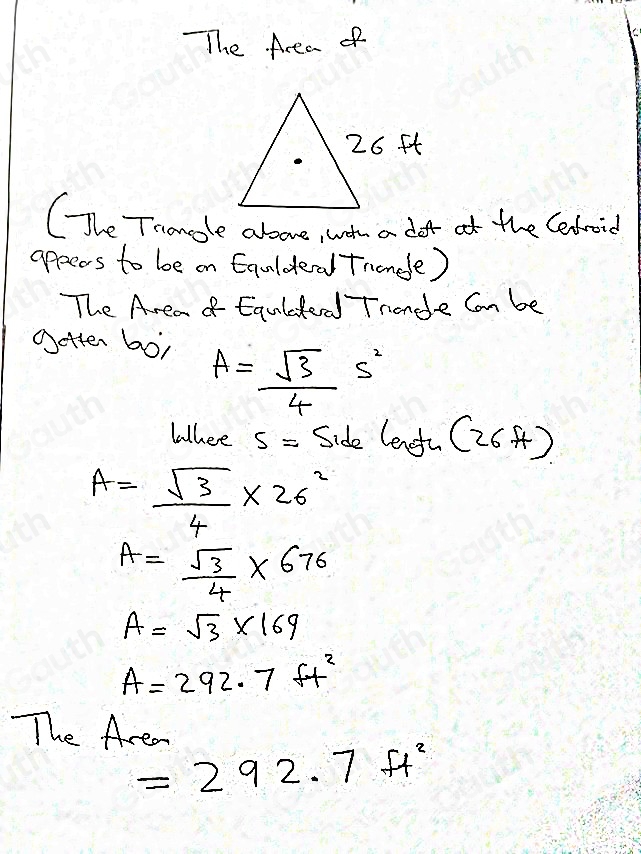 The Area of
26 ft
(The Triangle above, with a dot at the Centroid
appears to be an Equilateral Triangle)
The Area of Equilateral Triangle Can be
gotten by;
A = √3/4 s²
Where s = Side length (26 ft)
A = √3/4 × 26²
A = √3/4 × 676
A = √3 × 169
A = 292.7 ft²
The Area
= 292.7 ft²